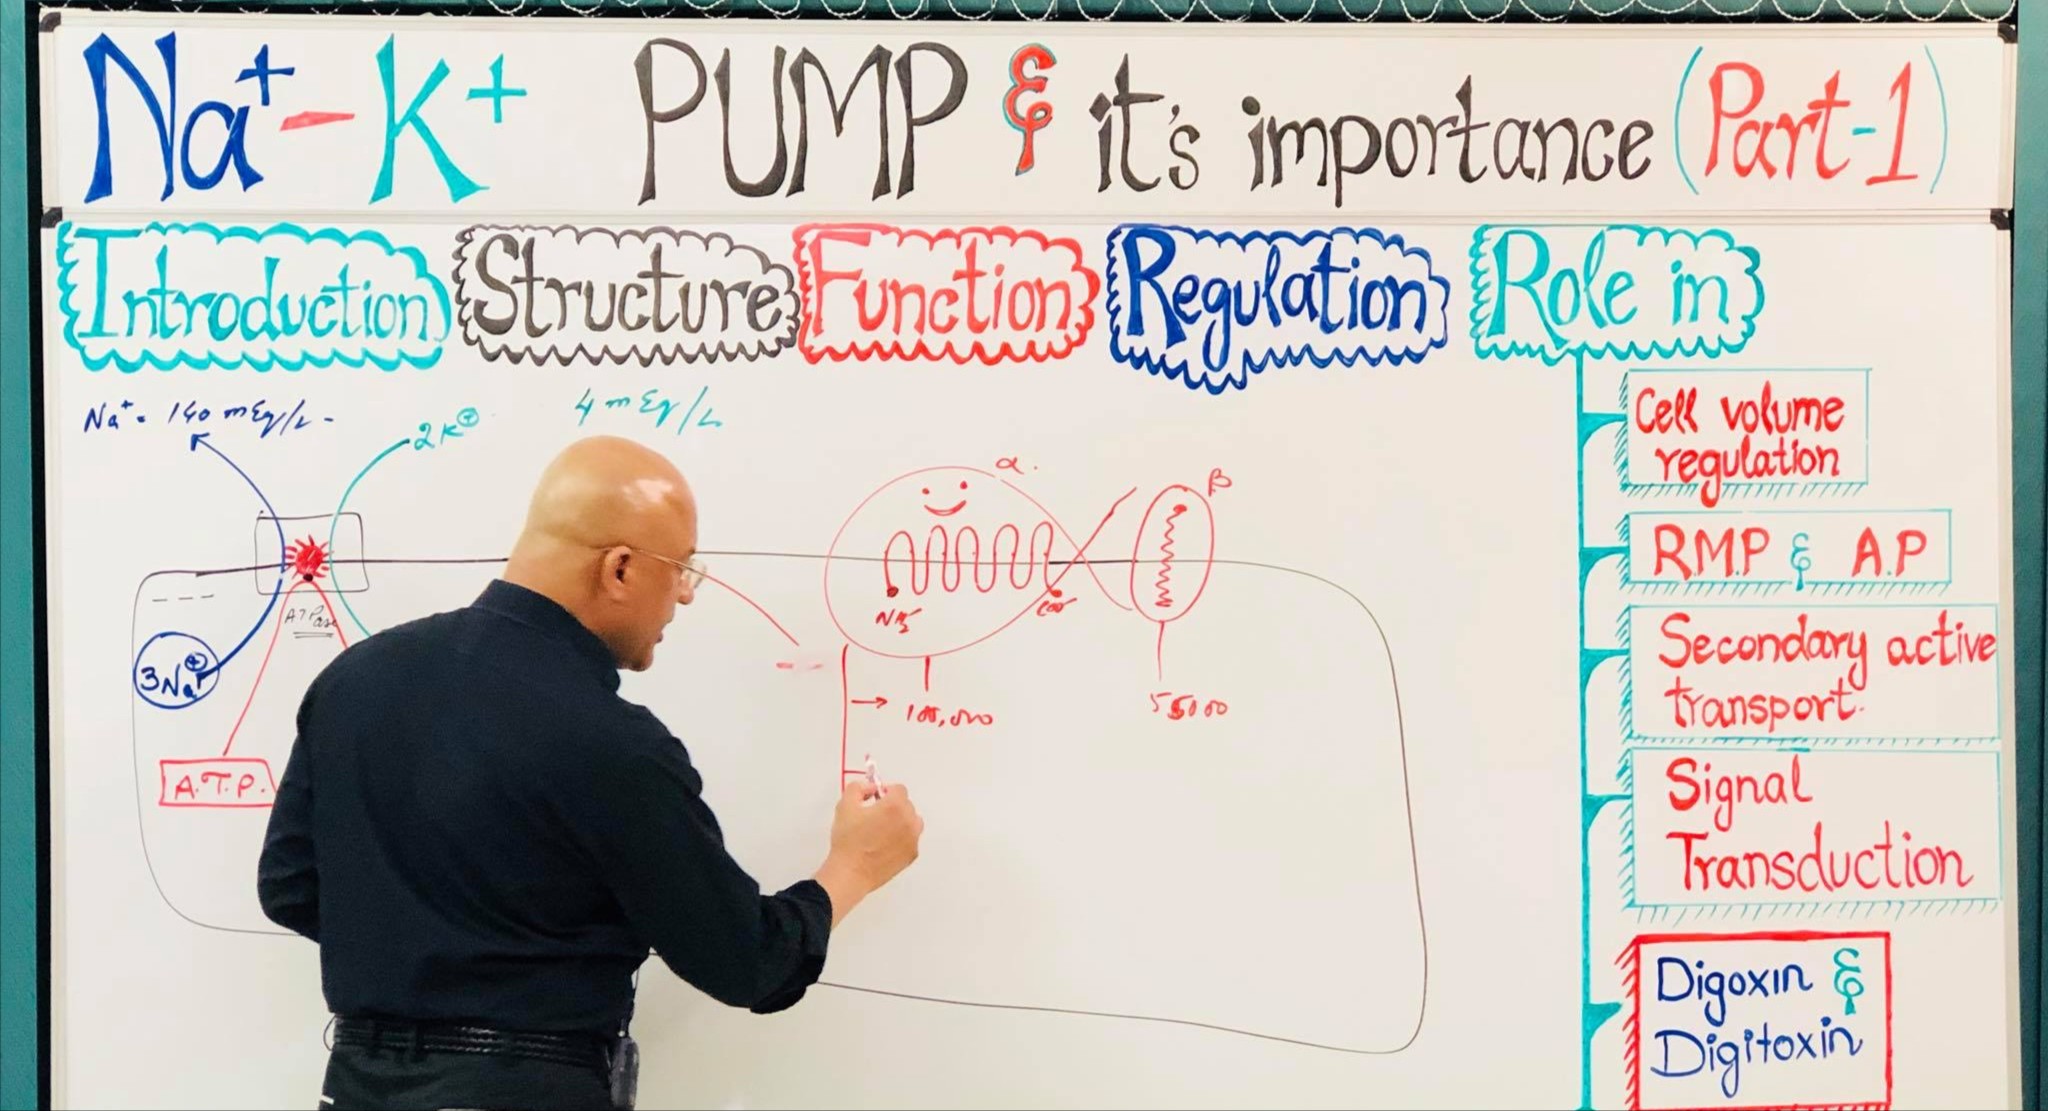 Na⁺-K⁺ PUMP & it's importance (Part-1)
Introduction
Structure
Function
Regulation
Role in
Cell volume
regulation
R.M.P & A.P
Secondary active
transport.
Signal
Transduction
Digoxin &
Digitoxin
Na⁺ = 140 mEq/L -
2K⊕
4 mEq/L
ATPase
3Na⊕
A.T.P.
α.
β
100,000
55000